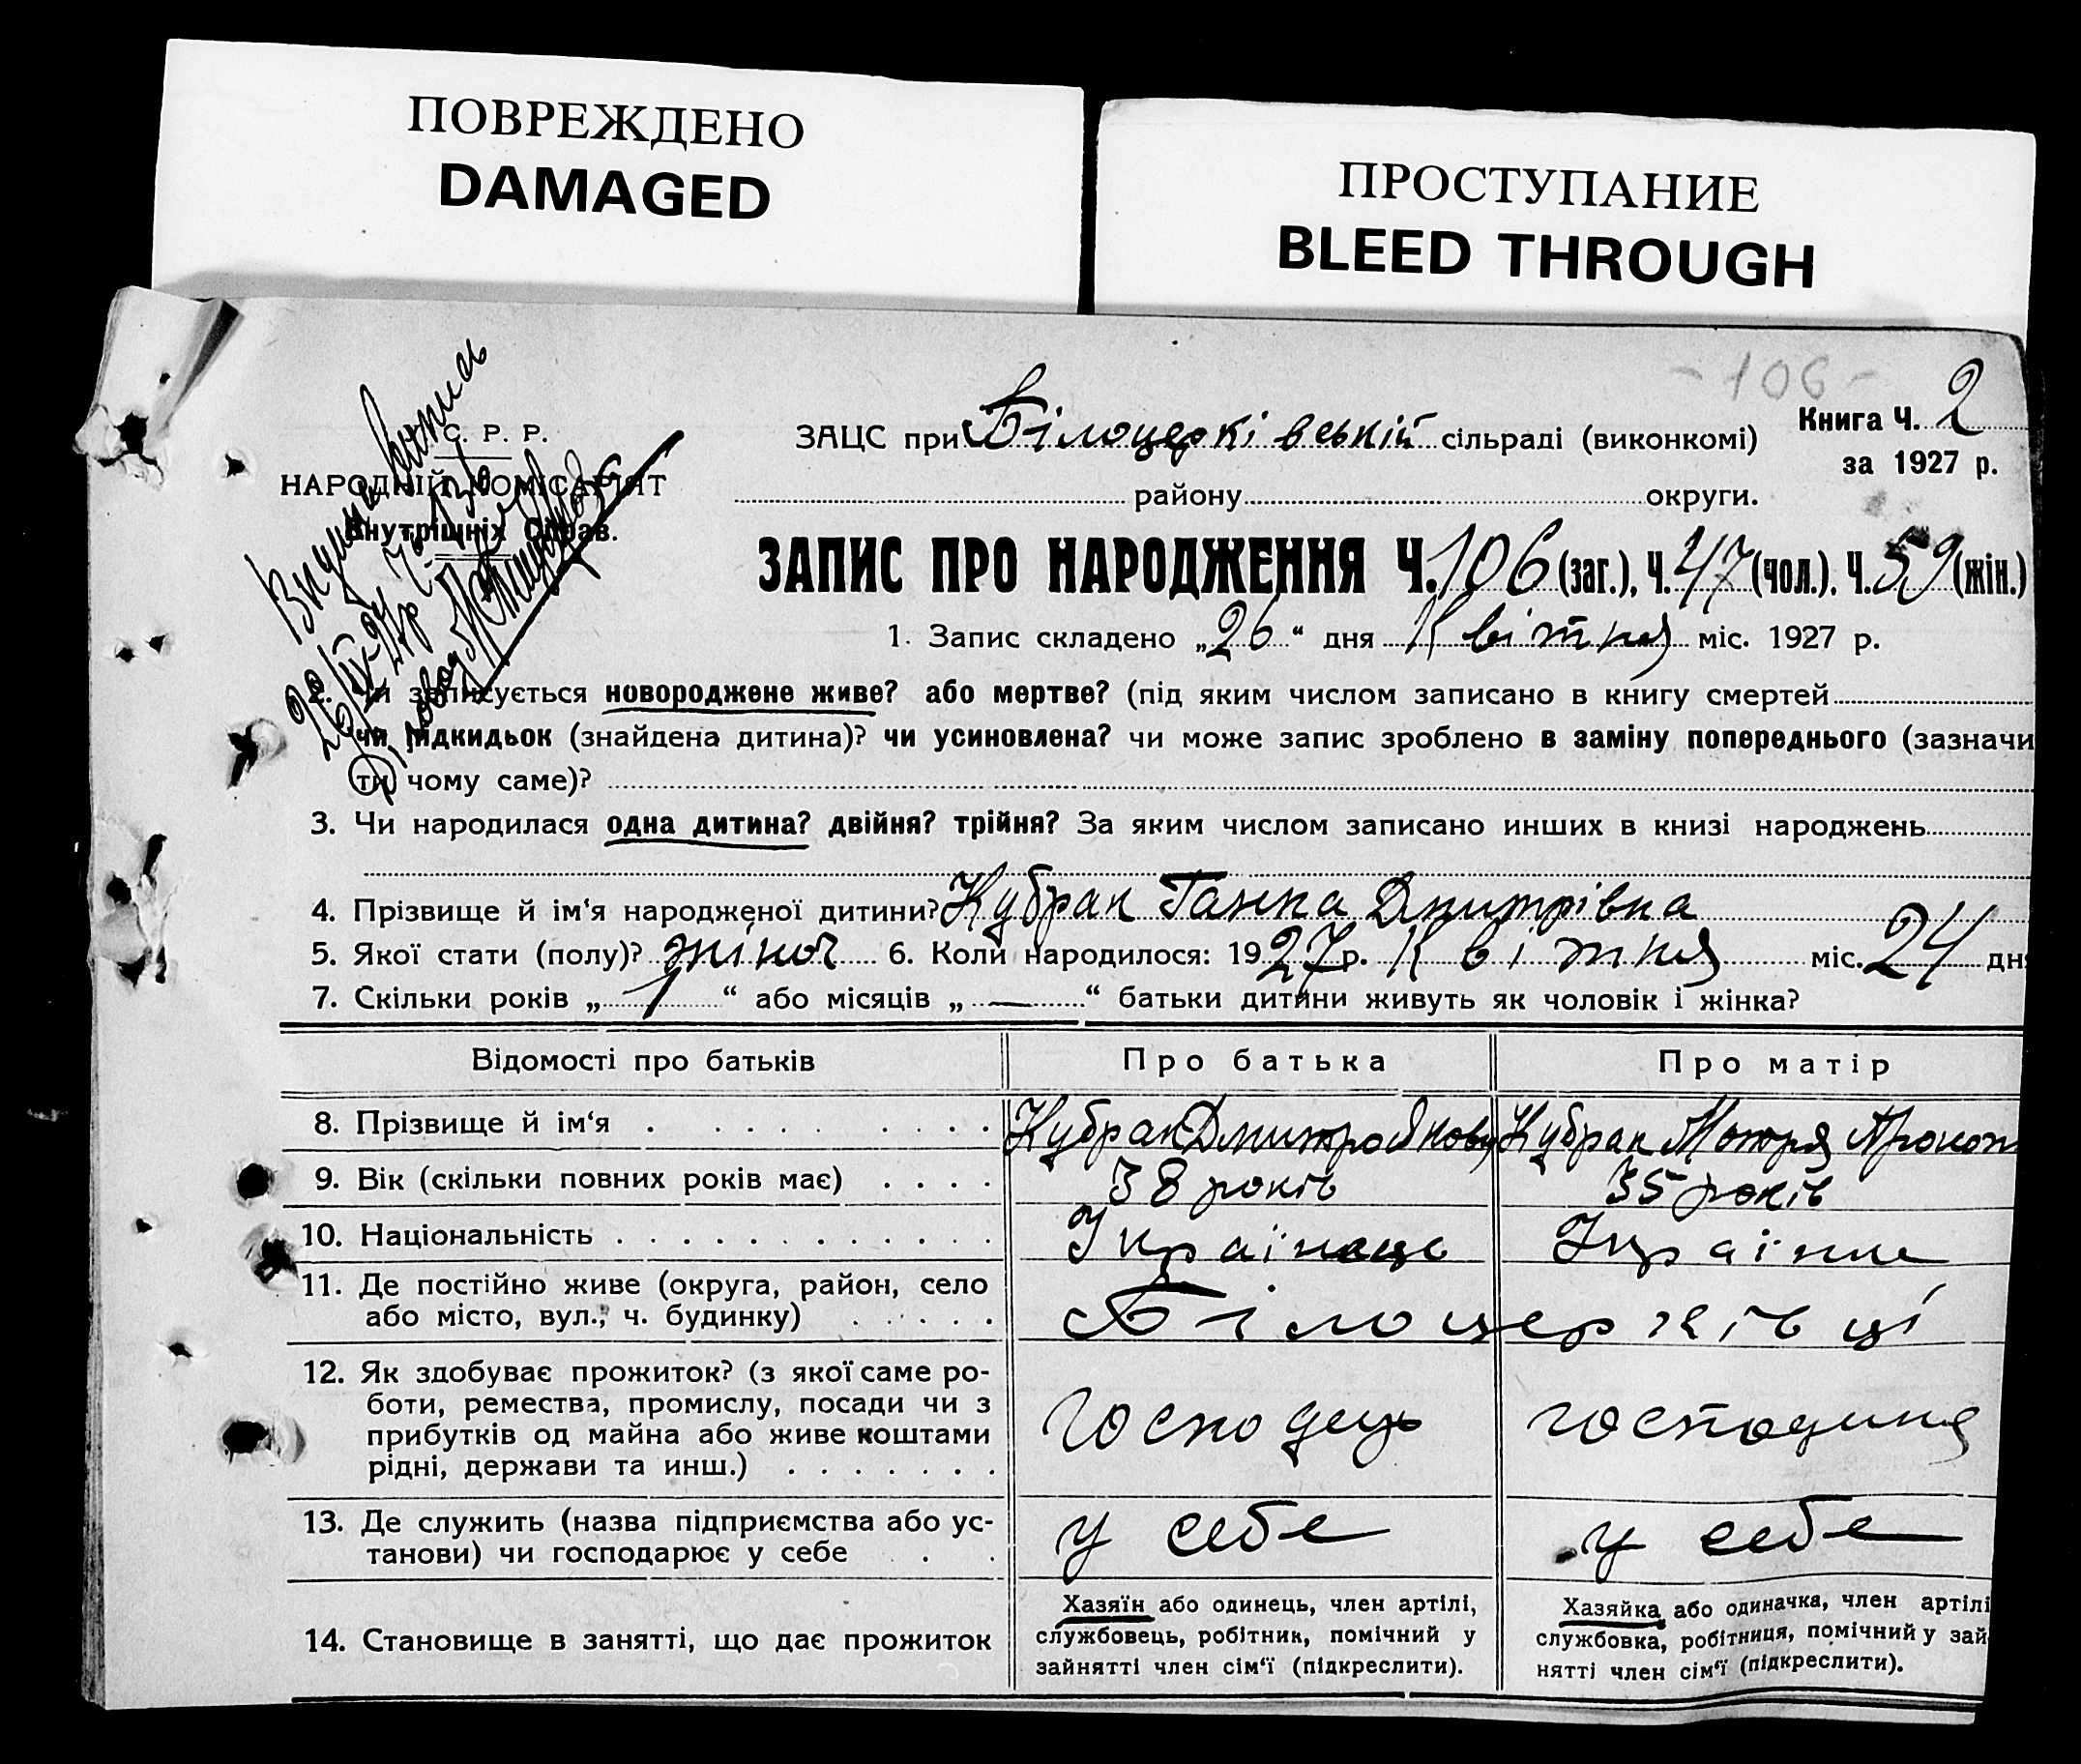 ПОВРЕЖДЕНО
DAMAGED
ПРОСТУПАНИЕ
BLEED THROUGH
-106-
Книга Ч. 2
за 1927 р.
С. Р. Р.
НАРОДНІЙ КОМІСАРІЯТ
Внутрішніх Справ.
ЗАЦС при Білоцерківській сільраді (виконкомі)
району округи.
ЗАПИС ПРО НАРОДЖЕННЯ Ч. 106 (заг.), Ч. 47 (чол.), Ч. 59 (жін.)
1. Запис складено „26“ дня Квітня міс. 1927 р.
2. Чи записується новороджене живе? або мертве? (під яким числом записано в книгу смертей
чи підкидьок (знайдена дитина)? чи усиновлена? чи може запис зроблено в заміну попереднього (зазначи
ти, чому саме)?
3. Чи народилася одна дитина? двійня? трійня? За яким числом записано инших в книзі народжень
4. Прізвище й ім‘я народженої дитини? Кубрак Ганна Дмитрівна
5. Якої стати (полу)? жіноч 6. Коли народилося: 1927 р. Квітня міс. 24 дн
7. Скільки років „1“ або місяців „—“ батьки дитини живуть як чоловік і жінка?
Відомості про батьків Про батька Про матір
8. Прізвище й ім‘я Кубрак Дмитро Яков Кубрак Мотря Прокоп
9. Вік (скільки повних років має) 38 років 35 років
10. Національність Українець Українк
11. Де постійно живе (округа, район, село
або місто, вул., ч. будинку) Білоцерківці
12. Як здобуває прожиток? (з якої саме ро-
боти, ремества, промислу, посади чи з
прибутків од майна або живе коштами
рідні, держави та инш.) господець господиня
13. Де служить (назва підприємства або ус-
танови) чи господарює у себе у себе у себе
14. Становище в занятті, що дає прожиток
Хазяїн або одинець, член артілі,
службовець, робітник, помічний у
зайнятті член сім‘ї (підкреслити).
Хазяйка або одиначка, член артілі
службовка, робітниця, помічний у зай
нятті член сім‘ї (підкреслити).